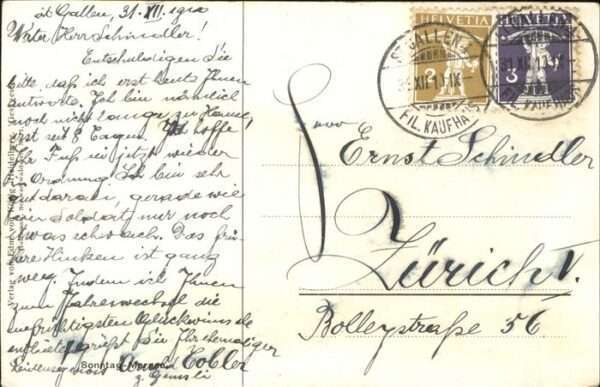 St Gallen, 31. XII. 1910
Werter Herr Schindler!
Entschuldigen Sie
bitte, daß ich erst heute Ihnen
antworte. Ich bin nämlich
noch nicht lange zu Hause,
erst seit 8 Tagen. Ich hoffe
Ihr Fuß sei jetzt wieder
in Ordnung. Ich bin sehr
gut daran, gerade wie
ein Soldat, nur noch
etwas schwach. Das frü-
here Hinken ist ganz
weg. Indem ich Ihnen
zum Jahreswechsel die
aufrichtigsten Glückwünsche
entbiete, grüßt Sie Ihr ehemaliger
Leidensgenosse Arnold Tobler
z. Gemsli
Sonntag-Morgen
Verlag von Edm. von König, Heidelberg
HELVETIA
2
HELVETIA
3
ST. GALLEN
31. XII. 10. IX
FIL. KAUFHAUS
ST. GALLEN
31. XII. 10. IX
FIL. KAUFHAUS
Ernst Schindler
Zürich V.
Bolleystraße 56